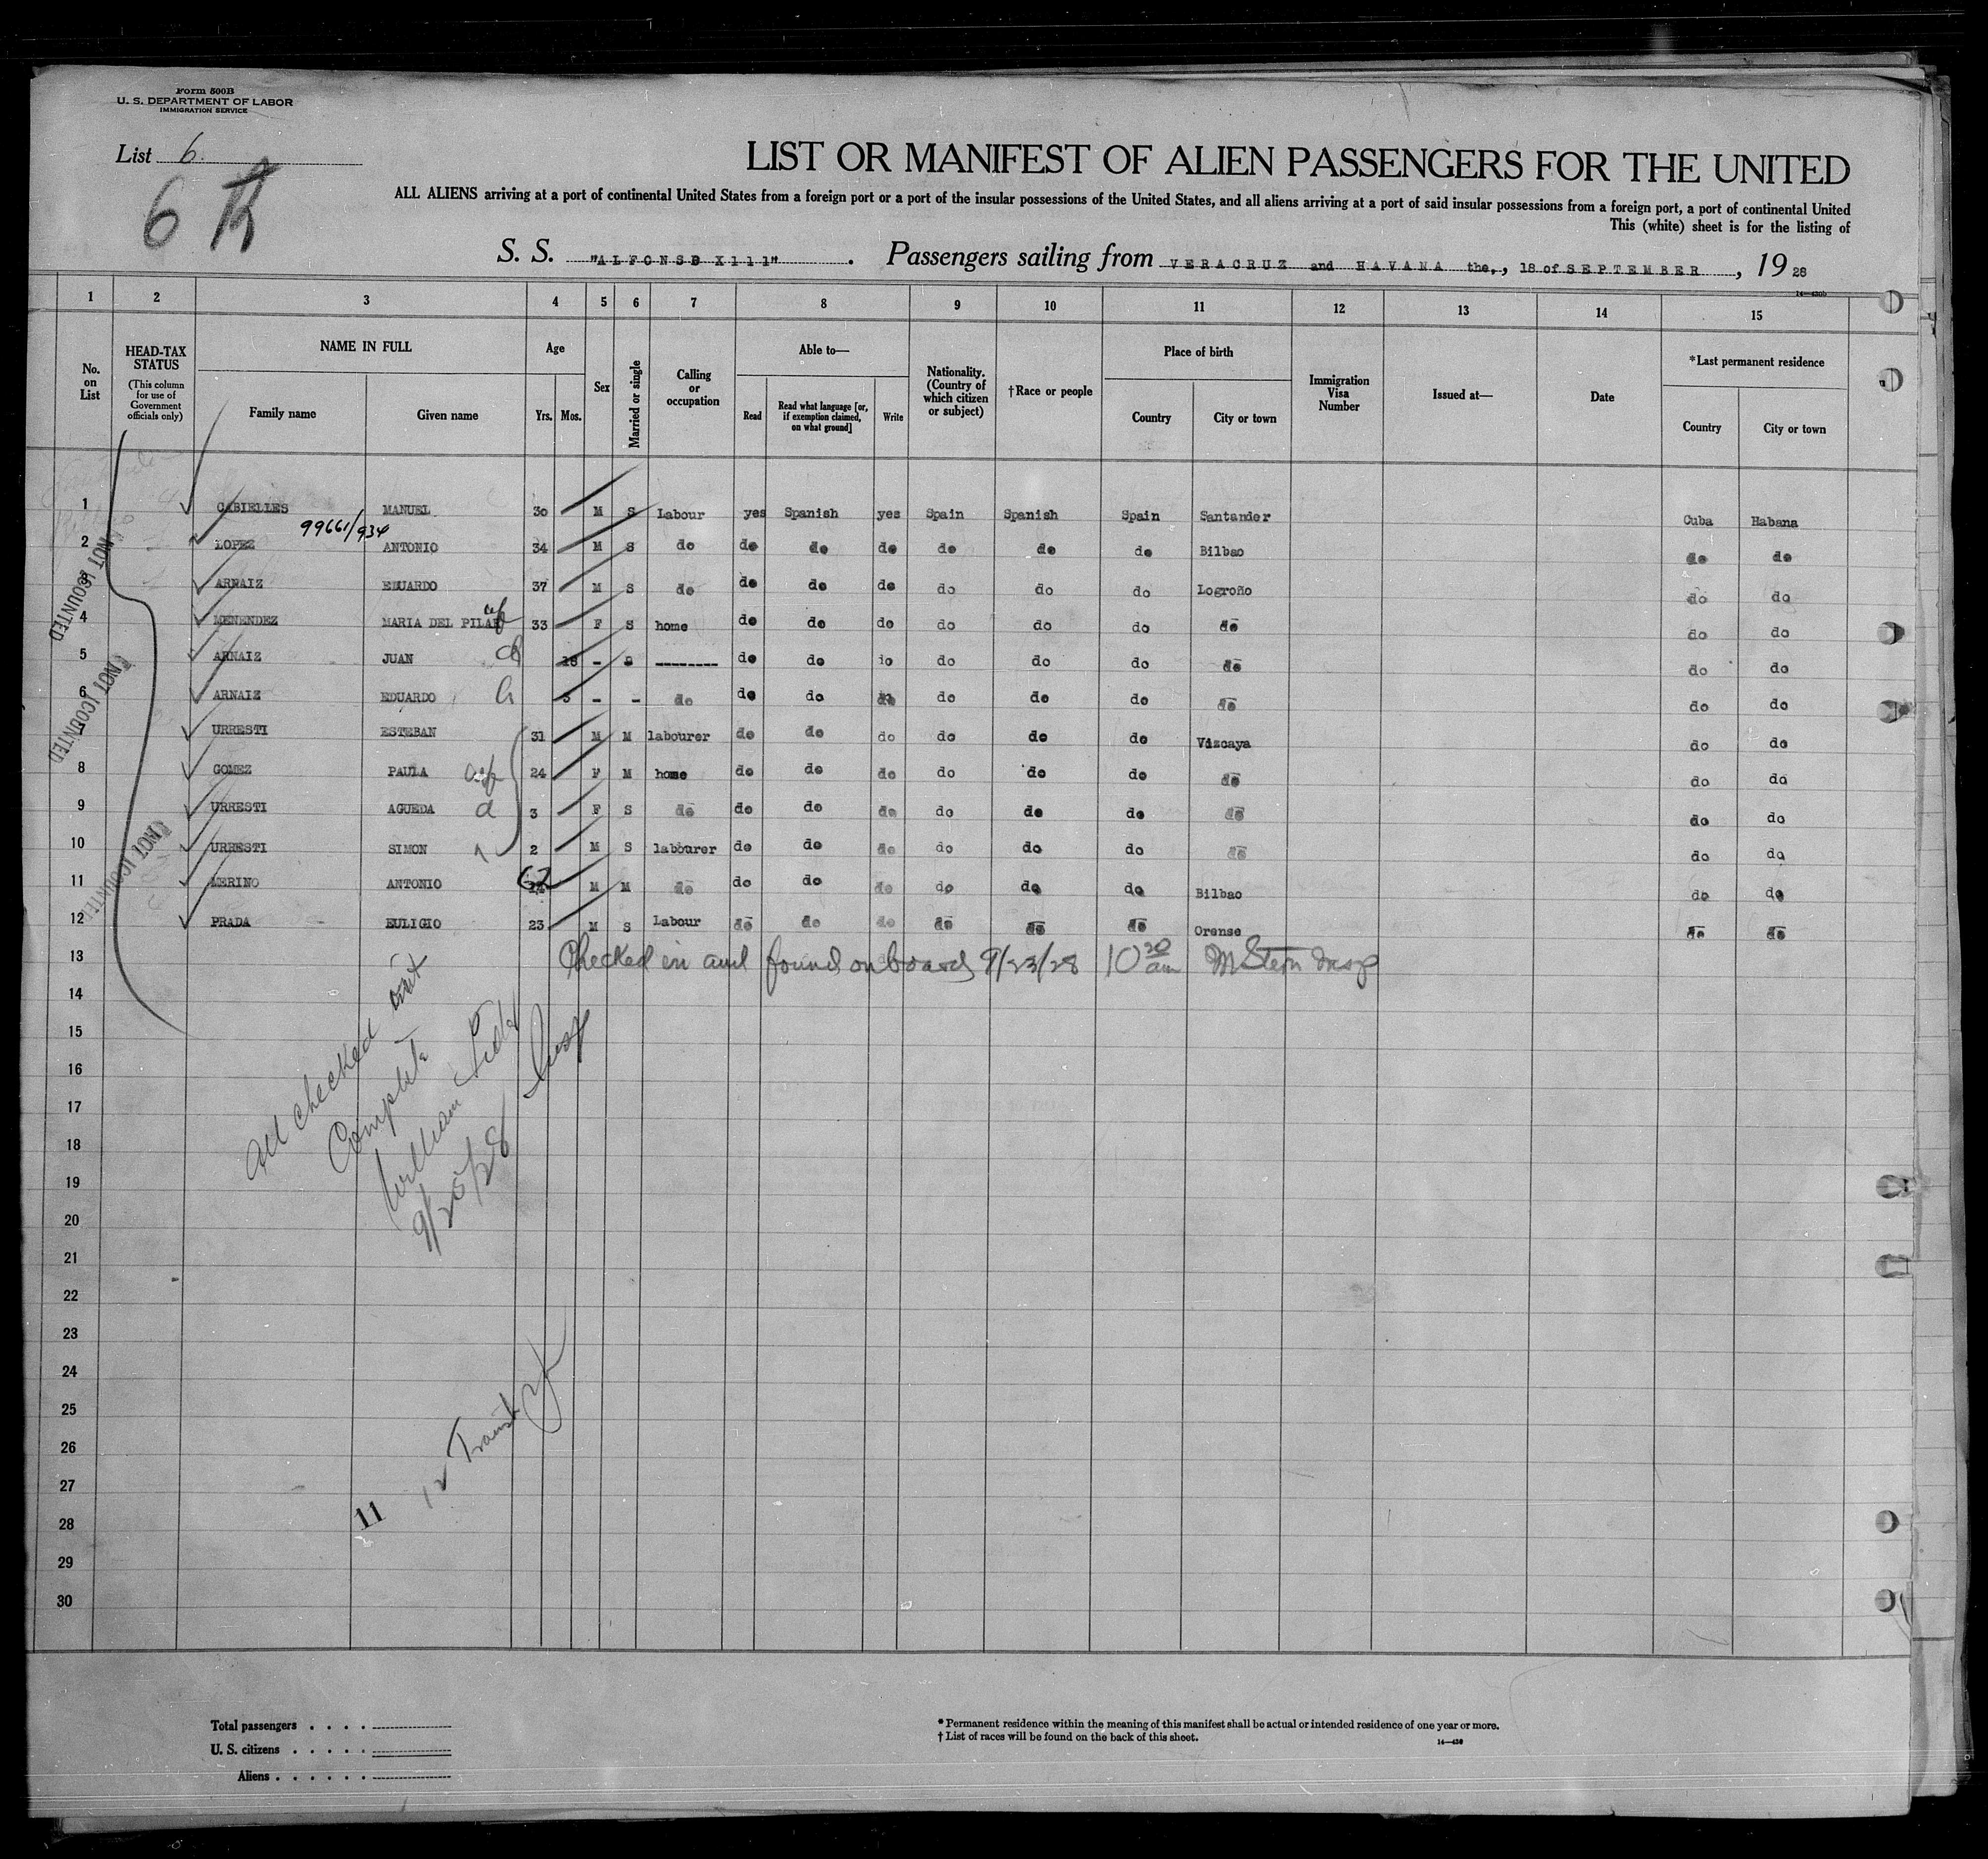 Form 500B
U. S. DEPARTMENT OF LABOR
IMMIGRATION SERVICE
List 6.
6
LIST OR MANIFEST OF ALIEN PASSENGERS FOR THE UNITED
ALL ALIENS arriving at a port of continental United States from a foreign port or a port of the insular possessions of the United States, and all aliens arriving at a port of said insular possessions from a foreign port, a port of continental United
This (white) sheet is for the listing of
S. S. "ALFONSO X111". Passengers sailing from VERACRUZ and HAVANA the., 18 of SEPTEMBER, 1928
14—430b
1 2 3 4 5 6 7 8 9 10 11 12 13 14 15
No. on List
HEAD-TAX STATUS (This column for use of Government officials only)
NAME IN FULL
Family name Given name
Age
Yrs. Mos.
Sex
Married or single
Calling or occupation
Able to—
Read Read what language [or, if exemption claimed, on what ground] Write
Nationality. (Country of which citizen or subject)
†Race or people
Place of birth
Country City or town
Immigration Visa Number
Issued at—
Date
*Last permanent residence
Country City or town
1 CABIELLES MANUEL 30 M S Labour yes Spanish yes Spain Spanish Spain Santander Cuba Habana
99661/934
2 LOPEZ ANTONIO 34 M S do do do do do do do Bilbao do do
3 ARNAIZ EDUARDO 37 M S do do do do do do do Logroño do do
4 MENENDEZ MARIA DEL PILAR 33 F S home do do do do do do do do do
5 ARNAIZ JUAN 18 - S -------- do do do do do do do do do
6 ARNAIZ EDUARDO 3 - - do do do do do do do do do do
7 URRESTI ESTEBAN 31 M M labourer do do do do do do Vizcaya do do
8 GOMEZ PAULA 24 F M home do do do do do do do do do
9 URRESTI AGUEDA 3 F S do do do do do do do do do do
10 URRESTI SIMON 2 M S labourer do do do do do do do do do
11 MERINO ANTONIO 62 M M do do do do do do do Bilbao do do
12 PRADA EULIGIO 23 M S Labour do do do do do do Orense do do
NOT COUNTED
NOT COUNTED
NOT COUNTED
13 Checked in and found on board 9/23/28 10 20 am M Stern Insp
14
15
16
17
18
19
20
21
22
23
24
25
26
27
28
29
30
All checked out
Complete
William
Insp
9/25/28
12 Transit
11
Total passengers . . . .
U. S. citizens . . . . .
Aliens . . . . . .
* Permanent residence within the meaning of this manifest shall be actual or intended residence of one year or more.
† List of races will be found on the back of this sheet.
14—430